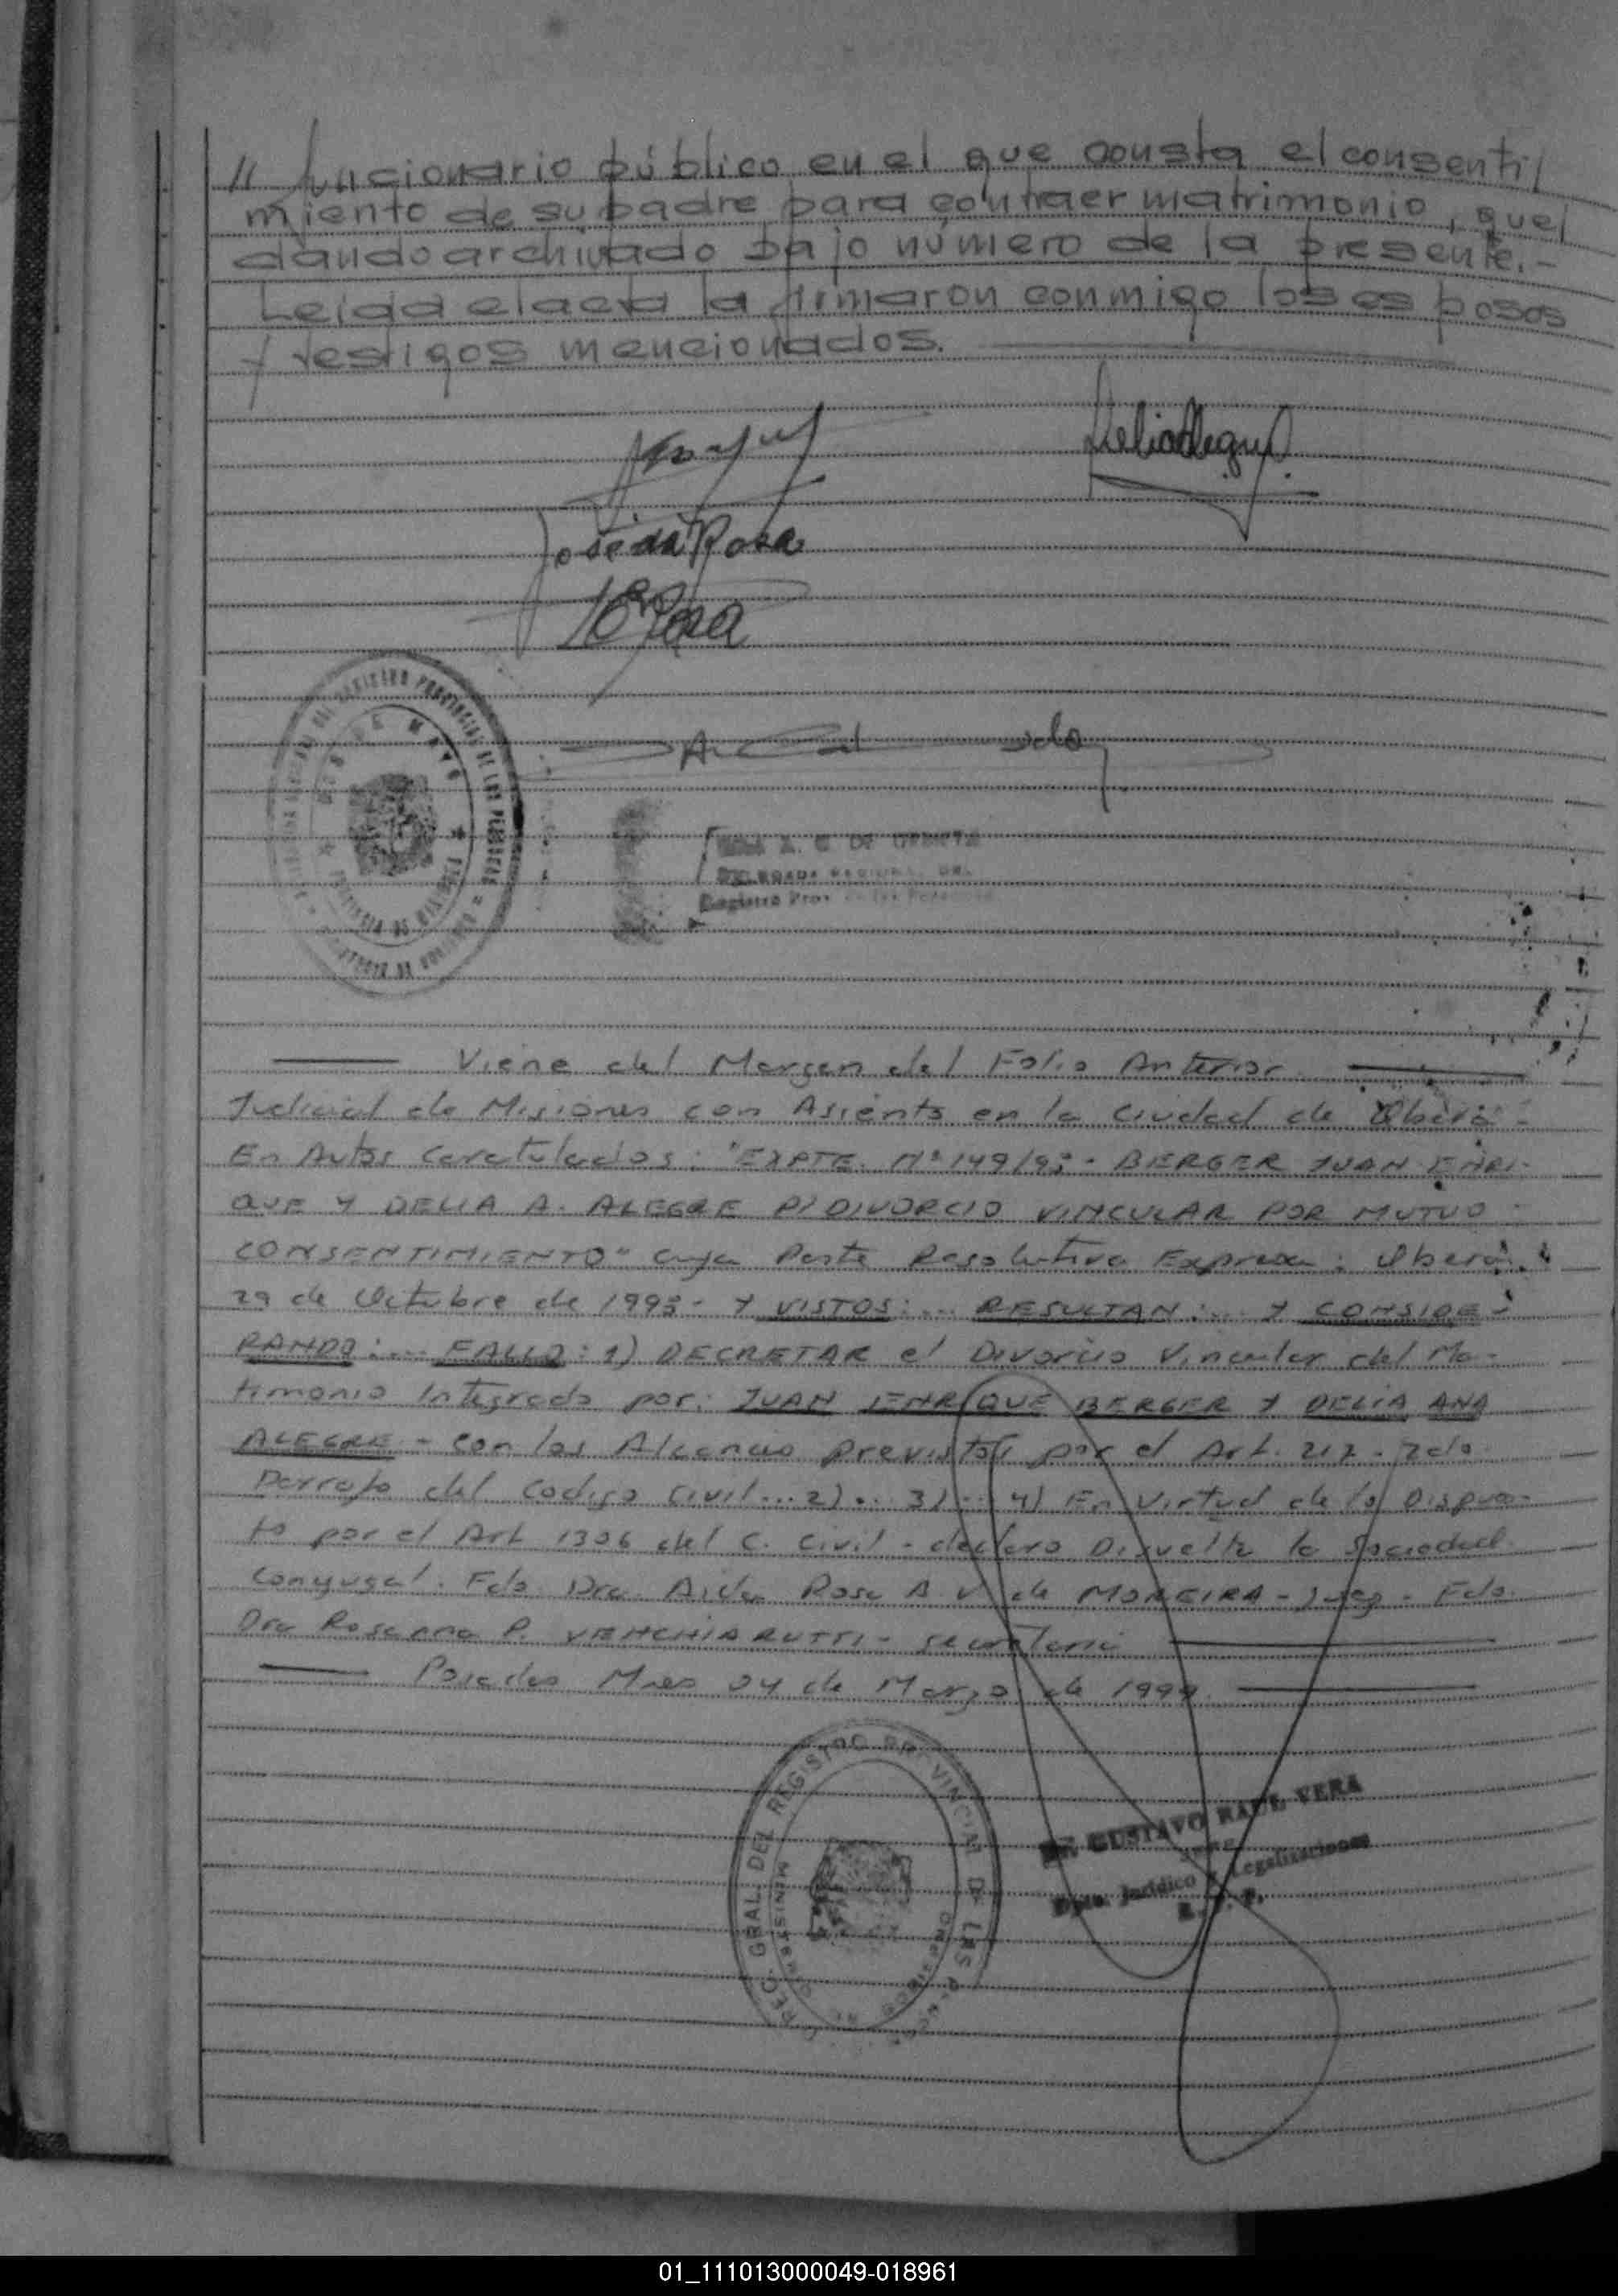 // funcionario público en el que consta el consenti/
miento de su padre para contraer matrimonio, que/
dando archivado bajo número de la presente.-
Leida el acta la firmaron conmigo los esposos
y testigos mencionados.
Delia Alegre
José da Rosa
Viene del Margen del Folio Anterior
Judicial de Misiones con Asiento en la Ciudad de Oberá-
En Autos Caratulados: "EXPTE. Nº 149/93- BERGER JUAN ENRI-
QUE Y DELIA A. ALEGRE P/DIVORCIO VINCULAR POR MUTUO
CONSENTIMIENTO" cuya Parte Resolutiva Expresa: Oberá,
29 de Octubre de 1993- Y VISTOS:... RESULTAN:... Y CONSIDE-
RANDO:... FALLO: 1) DECRETAR el Divorcio Vincular del Ma-
timonio Integrado por: JUAN ENRIQUE BERGER Y DELIA ANA
ALEGRE - con los Alcances previstos por el Art. 217- 2do
Parrafo del Codigo Civil...2)...3)...4) En Virtud de lo Dispues-
to por el Art 1306 del C. Civil - declaro Disuelta la Sociedad
Conyugal. Fdo. Dra. Aida Rosa A. V. de MOREIRA - Juez - Fdo.
Dra Rosanna P. VENCHIARUTTI - Secretaria
Posadas Mnes 04 de Marzo de 1994
REGISTRO PROVINCIAL DE LAS PERSONAS
DELEGADA
Registro Prov
DEC. GRAL. DEL REGISTRO PROVINCIAL DE LAS
Dr. GUSTAVO RAUL VERA
JEFE
Dpto. Jurídico y Legalizaciones
R. P. P.
01_111013000049-018961